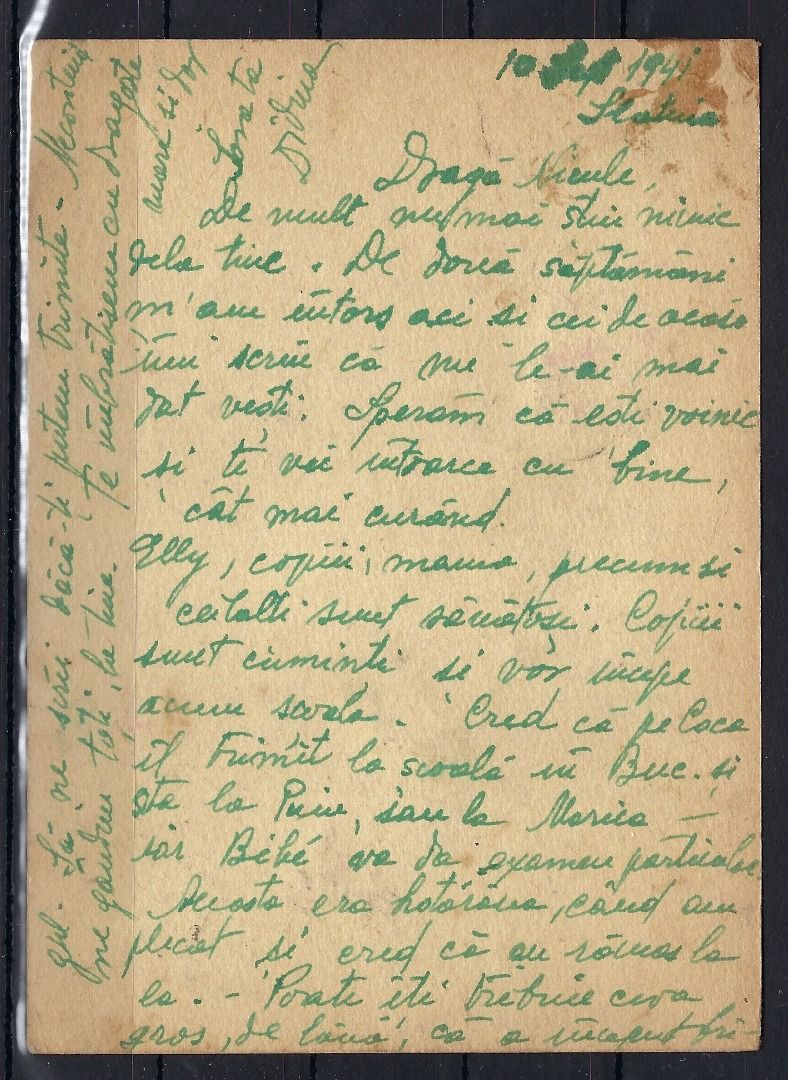 10 Sept 1941
Slatina
Dragă Nicule,
De mult nu mai știu nimic
dela tine. De două săptămâni
m'am întors aci si cei de acasa
îmi scriu că nu le-ai mai
dat vești. Sperăm că ești voinic
si te vei intoarce cu bine,
cât mai curând.
Elly, copiii, mama, precum si
ceilalti sunt sănătoși. Copiii
sunt cuminți si vor incepe
acum scoala. Cred că pe Coca
îl trimit la scoală in Buc. și
sta la Puiu, sau la Marica —
iar Bébé va da examen particular.
Aceasta era hotărârea, când am
plecat si cred că au rămas la
ea. - Poate iti trebuie ceva
gros, de lână, că a inceput fri-
gul. Să ne scrii dacă-ti putem trimite. - Necontenit
ne gândim toți la tine. Te imbrătisem cu dragoste
mare si dor
Didina